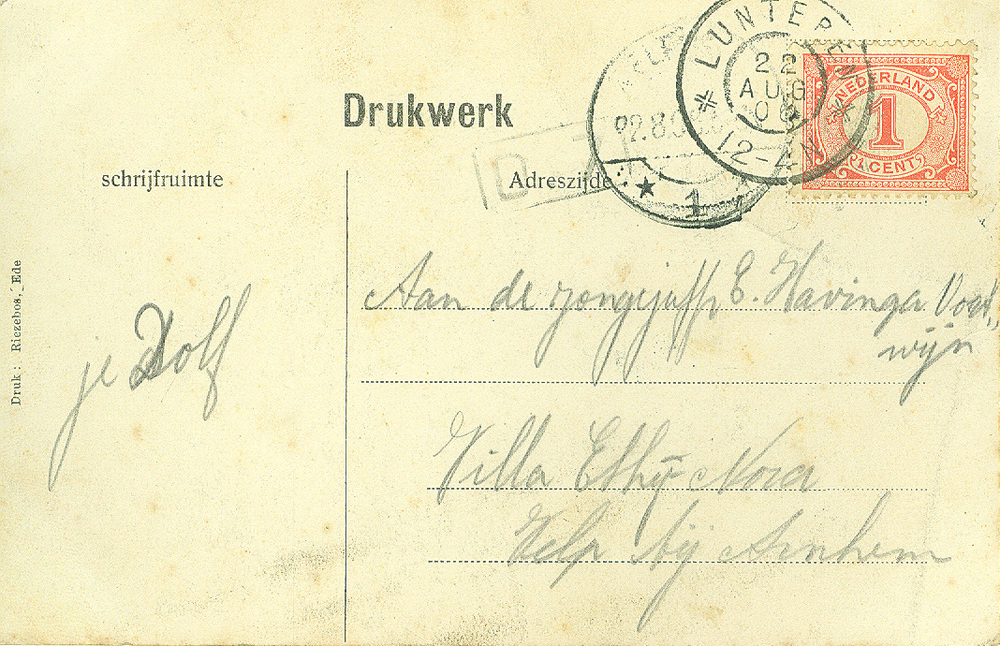 Drukwerk
schrijfruimte
Adreszijde
LUNTEREN
22
AUG
08
12-4N
22.8.
1
NEDERLAND
1
CENT
D
Druk: Riezebos, Ede
je Dolf
Aan de jongejuffr E. Havinga
wijn
Villa Ethy Nora
Velp bij Arnhem